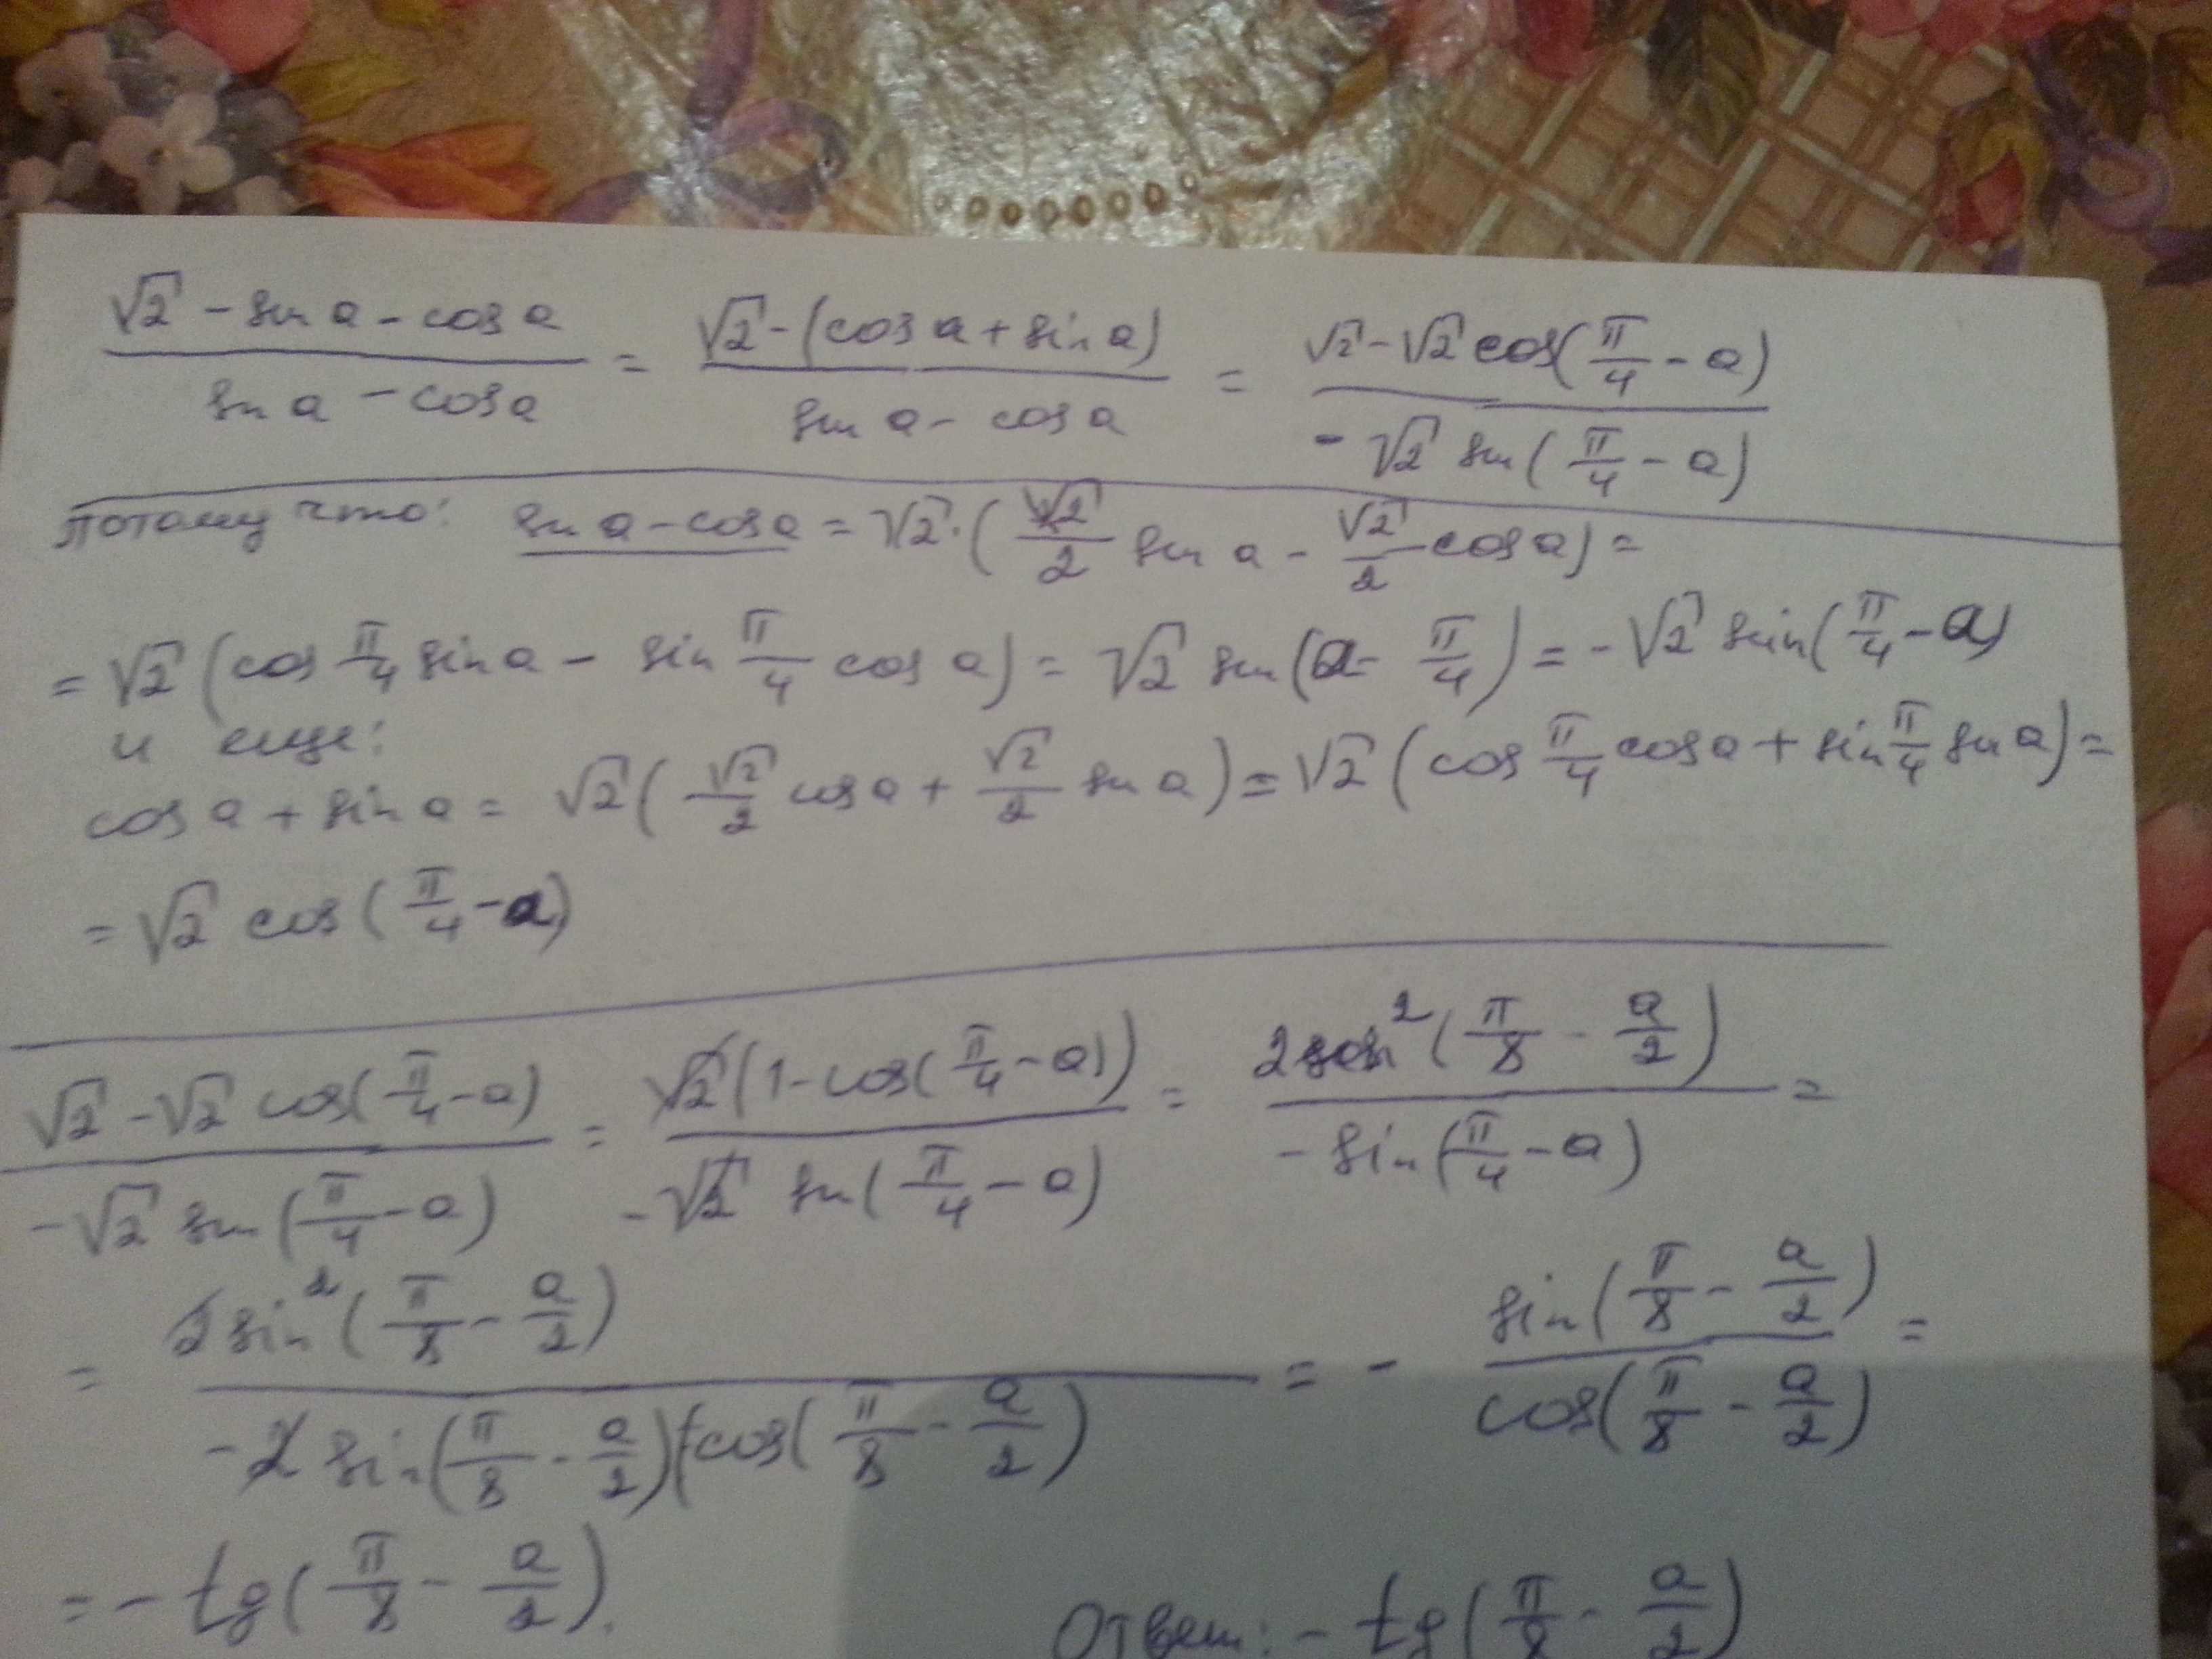 (√2 - sin a - cos a)/(sin a - cos a) = (√2 - (cos a + sin a))/(sin a - cos a) = (√2 - √2 cos(π/4 - a))/(-√2 sin(π/4 - a))
потому что: sin a - cos a = √2·(√2/2 sin a - √2/2 cos a) =
= √2 (cos π/4 sin a - sin π/4 cos a) = √2 sin(a - π/4) = -√2 sin(π/4 - a)
и еще:
cos a + sin a = √2 (√2/2 cos a + √2/2 sin a) = √2 (cos π/4 cos a + sin π/4 sin a) =
= √2 cos(π/4 - a)
(√2 - √2 cos(π/4 - a))/(-√2 sin(π/4 - a)) = (√2 (1 - cos(π/4 - a)))/(-√2 sin(π/4 - a)) = (2 sin²(π/8 - a/2))/(-sin(π/4 - a)) =
= (2 sin²(π/8 - a/2))/(-2 sin(π/8 - a/2) cos(π/8 - a/2)) = - sin(π/8 - a/2)/cos(π/8 - a/2) =
= - tg(π/8 - a/2).
Ответ: - tg(π/8 - a/2)